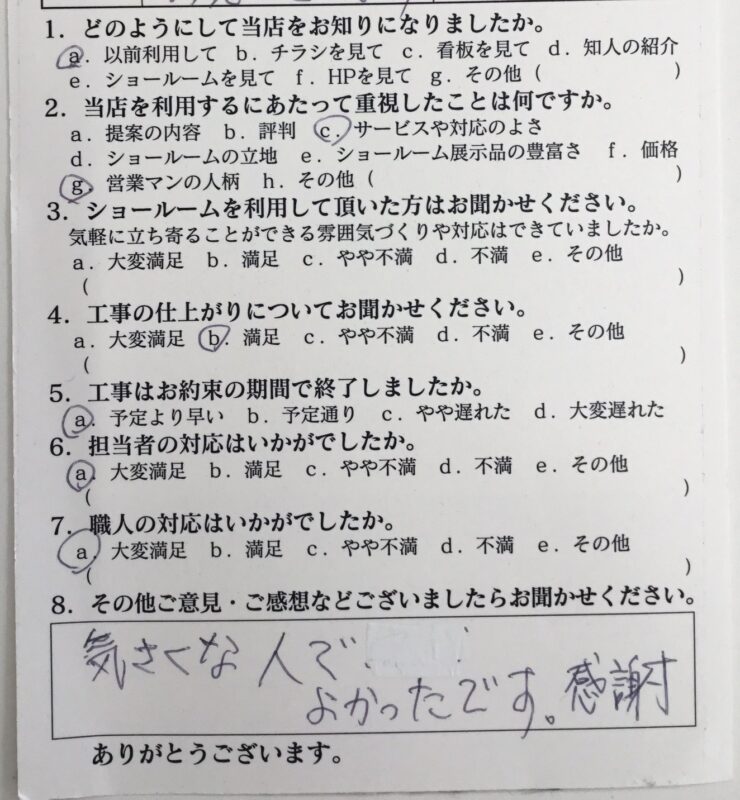 1．どのようにして当店をお知りになりましたか。
a．以前利用して b．チラシを見て c．看板を見て d．知人の紹介
e．ショールームを見て f．HPを見て g．その他（　　　）
2．当店を利用するにあたって重視したことは何ですか。
a．提案の内容 b．評判 c．サービスや対応のよさ
d．ショールームの立地 e．ショールーム展示品の豊富さ f．価格
g．営業マンの人柄 h．その他（　　　）
3．ショールームを利用して頂いた方はお聞かせください。
気軽に立ち寄ることができる雰囲気づくりや対応はできていましたか。
a．大変満足 b．満足 c．やや不満 d．不満 e．その他
（　　　）
4．工事の仕上がりについてお聞かせください。
a．大変満足 b．満足 c．やや不満 d．不満 e．その他
（　　　）
5．工事はお約束の期間で終了しましたか。
a．予定より早い b．予定通り c．やや遅れた d．大変遅れた
6．担当者の対応はいかがでしたか。
a．大変満足 b．満足 c．やや不満 d．不満 e．その他
（　　　）
7．職人の対応はいかがでしたか。
a．大変満足 b．満足 c．やや不満 d．不満 e．その他
（　　　）
8．その他ご意見・ご感想などございましたらお聞かせください。
気さくな人で
よかったです。感謝
ありがとうございます。